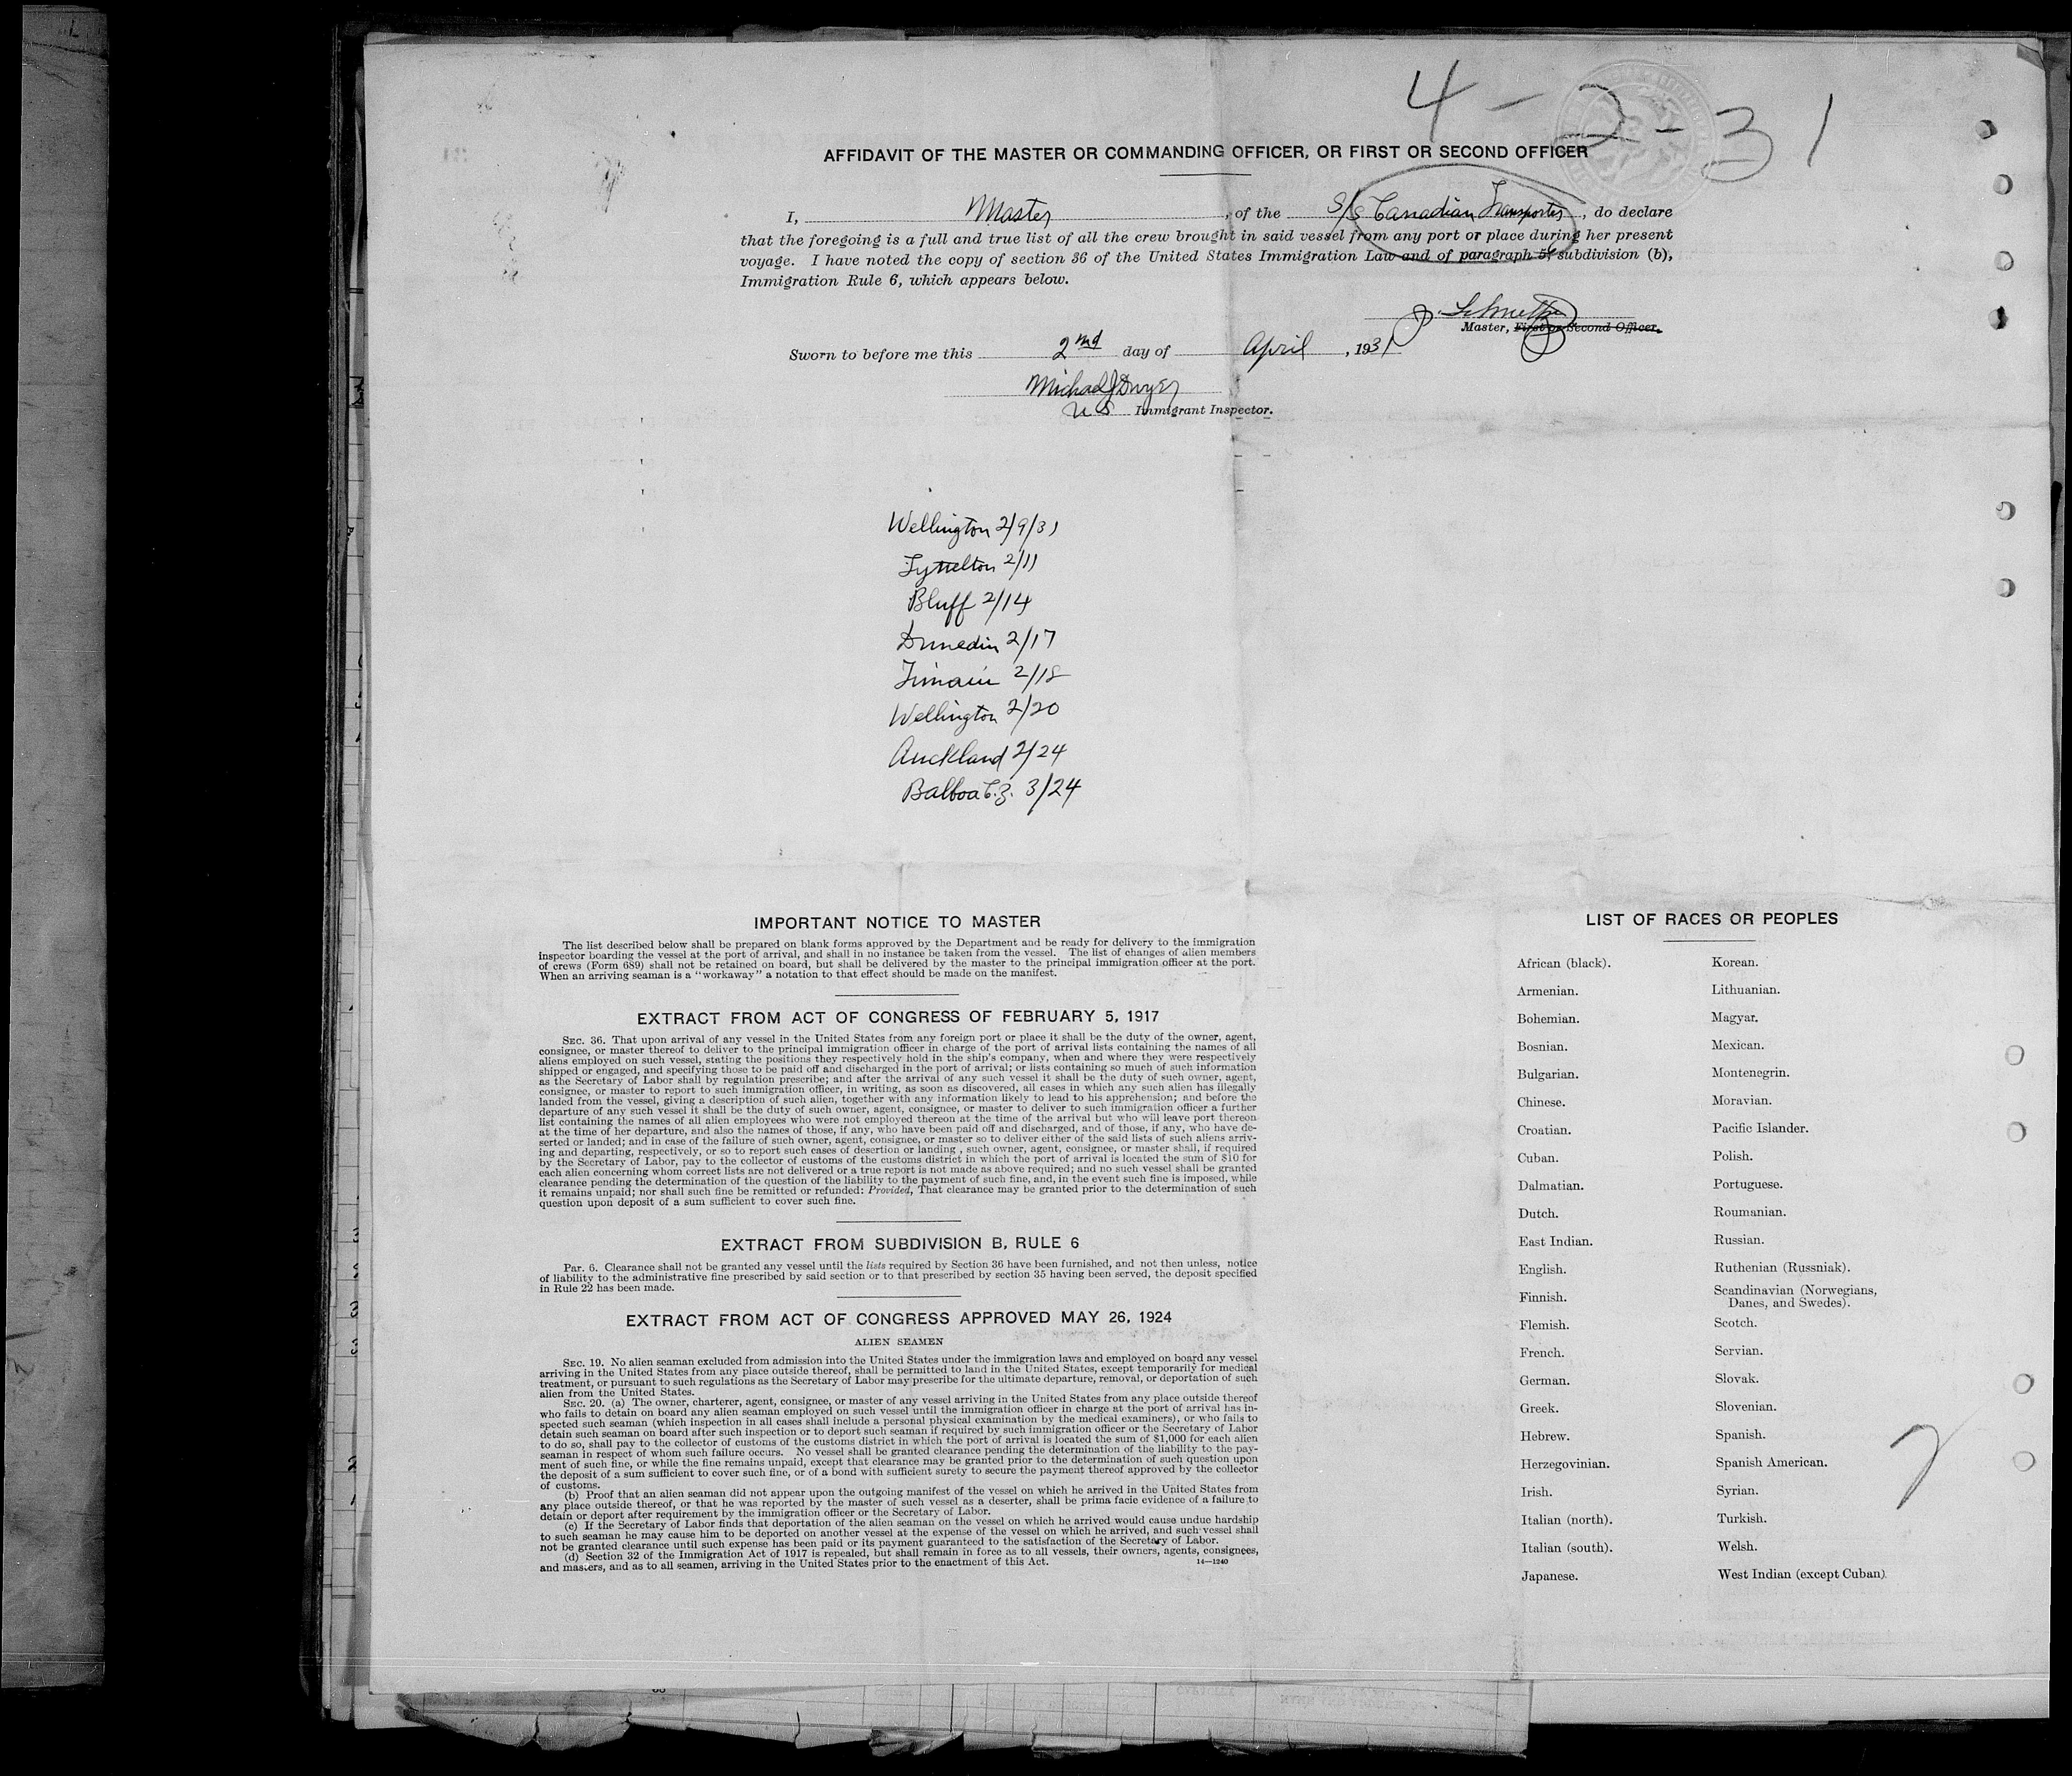 4-2-31
AFFIDAVIT OF THE MASTER OR COMMANDING OFFICER, OR FIRST OR SECOND OFFICER
I, Master, of the S/S Canadian Transporter, do declare
that the foregoing is a full and true list of all the crew brought in said vessel from any port or place during her present
voyage. I have noted the copy of section 36 of the United States Immigration Law and of paragraph 56 subdivision (b),
Immigration Rule 6, which appears below.
Master, First or Second Officer.
Sworn to before me this 2nd day of April, 1931
Michael J Dwyer
U S Immigrant Inspector.
Wellington 2/9/31
Lyttelton 2/11
Bluff 2/14
Dunedin 2/17
Timaru 2/18
Wellington 2/20
Auckland 2/24
Balboa C.Z. 3/24
IMPORTANT NOTICE TO MASTER
The list described below shall be prepared on blank forms approved by the Department and be ready for delivery to the immigration
inspector boarding the vessel at the port of arrival, and shall in no instance be taken from the vessel. The list of changes of alien members
of crews (Form 689) shall not be retained on board, but shall be delivered by the master to the principal immigration officer at the port.
When an arriving seaman is a "workaway" a notation to that effect should be made on the manifest.
EXTRACT FROM ACT OF CONGRESS OF FEBRUARY 5, 1917
SEC. 36. That upon arrival of any vessel in the United States from any foreign port or place it shall be the duty of the owner, agent,
consignee, or master thereof to deliver to the principal immigration officer in charge of the port of arrival lists containing the names of all
aliens employed on such vessel, stating the positions they respectively hold in the ship's company, when and where they were respectively
shipped or engaged, and specifying those to be paid off and discharged in the port of arrival; or lists containing so much of such information
as the Secretary of Labor shall by regulation prescribe; and after the arrival of any such vessel it shall be the duty of such owner, agent,
consignee, or master to report to such immigration officer, in writing, as soon as discovered, all cases in which any such alien has illegally
landed from the vessel, giving a description of such alien, together with any information likely to lead to his apprehension; and before the
departure of any such vessel it shall be the duty of such owner, agent, consignee, or master to deliver to such immigration officer a further
list containing the names of all alien employees who were not employed thereon at the time of the arrival but who will leave port thereon
at the time of her departure, and also the names of those, if any, who have been paid off and discharged, and of those, if any, who have de-
serted or landed; and in case of the failure of such owner, agent, consignee, or master so to deliver either of the said lists of such aliens arriv-
ing and departing, respectively, or so to report such cases of desertion or landing, such owner, agent, consignee, or master shall, if required
by the Secretary of Labor, pay to the collector of customs of the customs district in which the port of arrival is located the sum of $10 for
each alien concerning whom correct lists are not delivered or a true report is not made as above required; and no such vessel shall be granted
clearance pending the determination of the question of the liability to the payment of such fine, and, in the event such fine is imposed, while
it remains unpaid; nor shall such fine be remitted or refunded: Provided, That clearance may be granted prior to the determination of such
question upon deposit of a sum sufficient to cover such fine.
EXTRACT FROM SUBDIVISION B, RULE 6
PAR. 6. Clearance shall not be granted any vessel until the lists required by Section 36 have been furnished, and not then unless, notice
of liability to the administrative fine prescribed by said section or to that prescribed by section 35 having been served, the deposit specified
in Rule 22 has been made.
EXTRACT FROM ACT OF CONGRESS APPROVED MAY 26, 1924
ALIEN SEAMEN
SEC. 19. No alien seaman excluded from admission into the United States under the immigration laws and employed on board any vessel
arriving in the United States from any place outside thereof, shall be permitted to land in the United States, except temporarily for medical
treatment, or pursuant to such regulations as the Secretary of Labor may prescribe for the ultimate departure, removal, or deportation of such
alien from the United States.
SEC. 20. (a) The owner, charterer, agent, consignee, or master of any vessel arriving in the United States from any place outside thereof
who fails to detain on board any alien seaman employed on such vessel until the immigration officer in charge at the port of arrival has in-
spected such seaman (which inspection in all cases shall include a personal physical examination by the medical examiners), or who fails to
detain such seaman on board after such inspection or to deport such seaman if required by such immigration officer or the Secretary of Labor
to do so, shall pay to the collector of customs of the customs district in which the port of arrival is located the sum of $1,000 for each alien
seaman in respect of whom such failure occurs. No vessel shall be granted clearance pending the determination of the liability to the pay-
ment of such fine, or while the fine remains unpaid, except that clearance may be granted prior to the determination of such question upon
the deposit of a sum sufficient to cover such fine, or of a bond with sufficient surety to secure the payment thereof approved by the collector
of customs.
(b) Proof that an alien seaman did not appear upon the outgoing manifest of the vessel on which he arrived in the United States from
any place outside thereof, or that he was reported by the master of such vessel as a deserter, shall be prima facie evidence of a failure to
detain or deport after requirement by the immigration officer or the Secretary of Labor.
(c) If the Secretary of Labor finds that deportation of the alien seaman on the vessel on which he arrived would cause undue hardship
to such seaman he may cause him to be deported on another vessel at the expense of the vessel on which he arrived, and such vessel shall
not be granted clearance until such expense has been paid or its payment guaranteed to the satisfaction of the Secretary of Labor.
(d) Section 32 of the Immigration Act of 1917 is repealed, but shall remain in force as to all vessels, their owners, agents, consignees,
and masters, and as to all seamen, arriving in the United States prior to the enactment of this Act. 14—1240
LIST OF RACES OR PEOPLES
African (black).
Armenian.
Bohemian.
Bosnian.
Bulgarian.
Chinese.
Croatian.
Cuban.
Dalmatian.
Dutch.
East Indian.
English.
Finnish.
Flemish.
French.
German.
Greek.
Hebrew.
Herzegovinian.
Irish.
Italian (north).
Italian (south).
Japanese.
Korean.
Lithuanian.
Magyar.
Mexican.
Montenegrin.
Moravian.
Pacific Islander.
Polish.
Portuguese.
Roumanian.
Russian.
Ruthenian (Russniak).
Scandinavian (Norwegians,
Danes, and Swedes).
Scotch.
Servian.
Slovak.
Slovenian.
Spanish.
Spanish American.
Syrian.
Turkish.
Welsh.
West Indian (except Cuban)